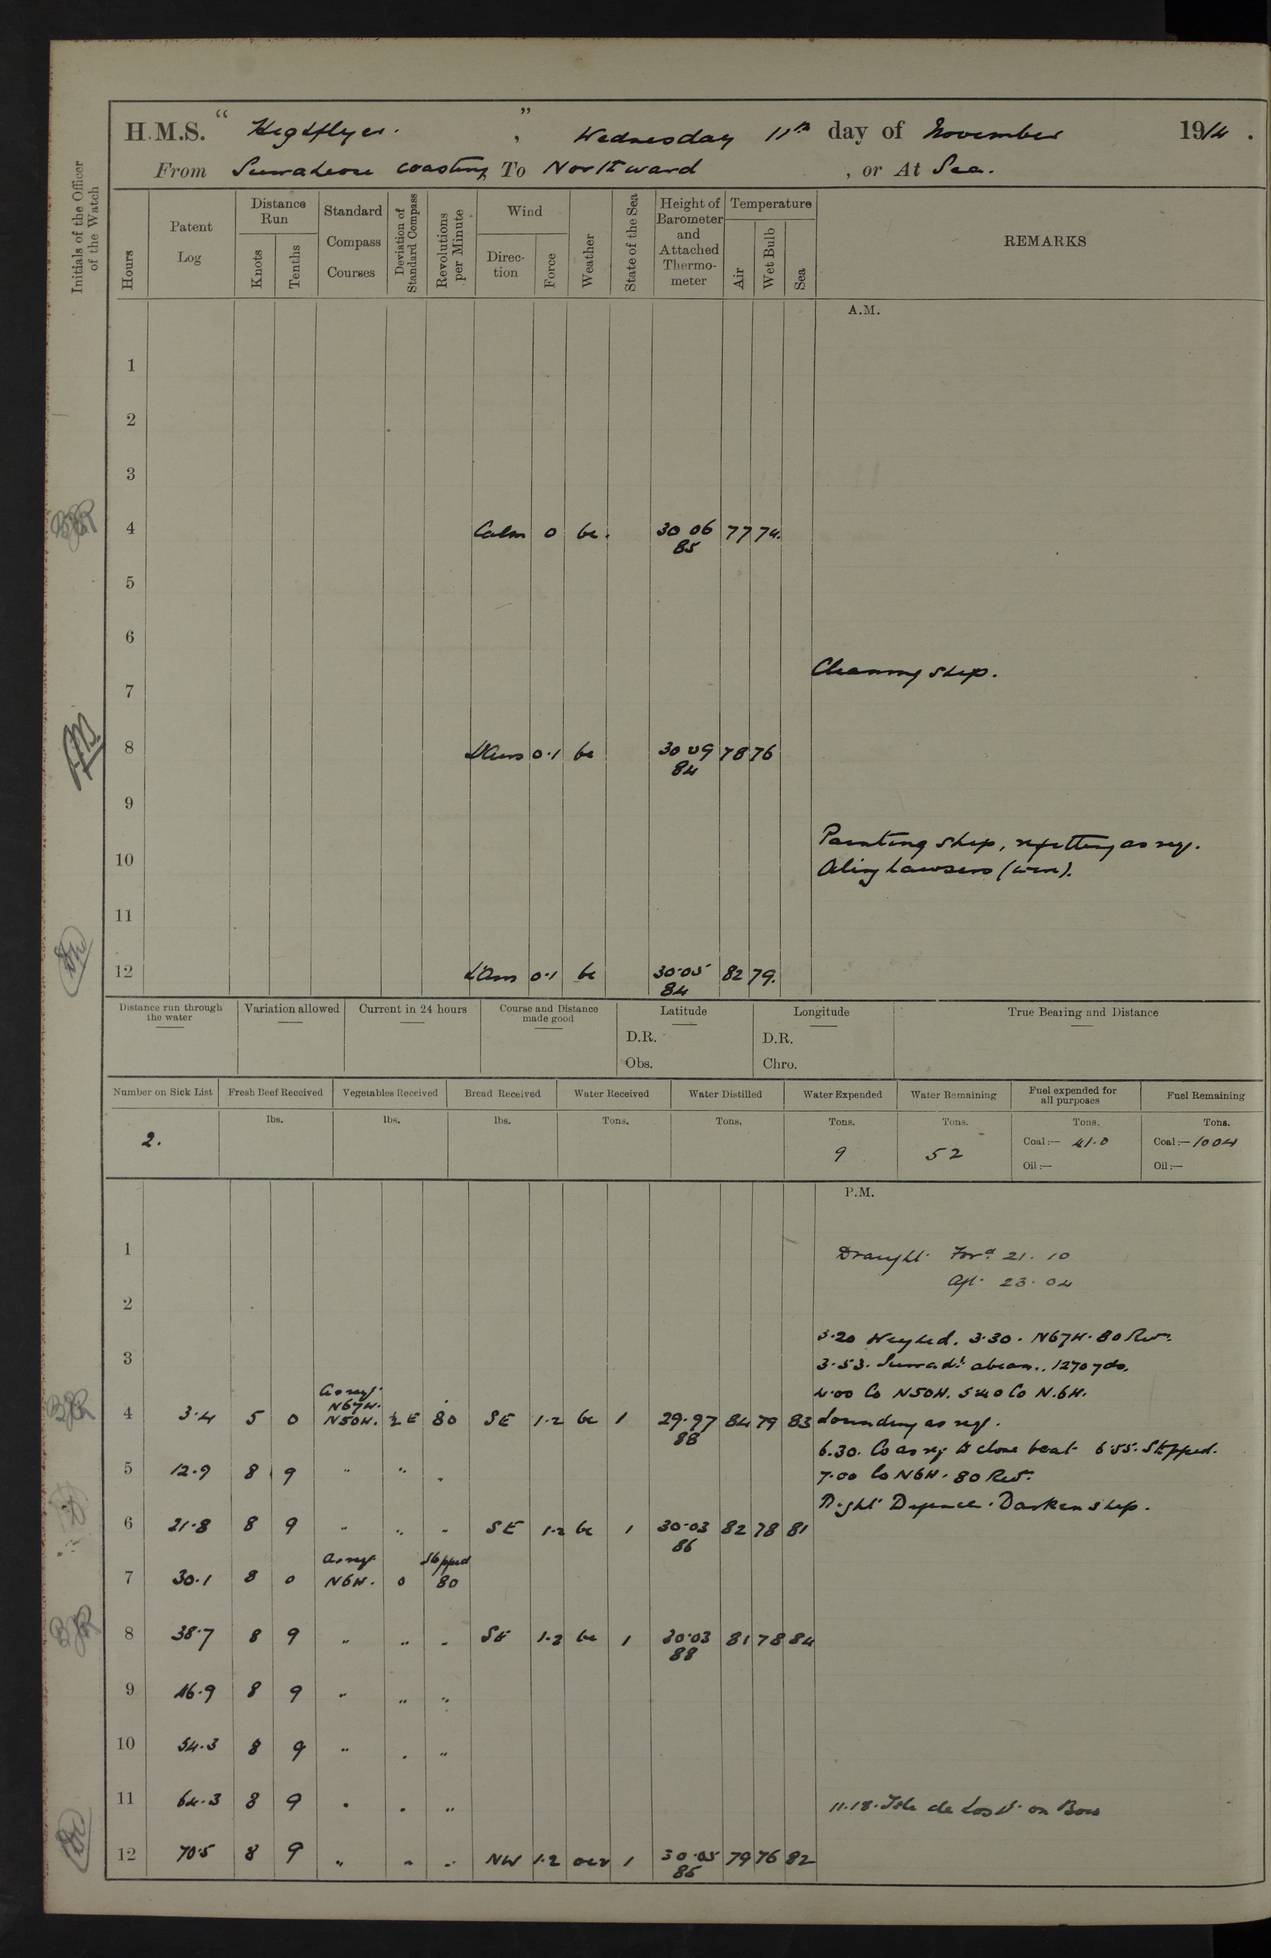 H.M.S. " Highflyer. ", Wednesday 11th day of November 1914.
From Sierra Leone coasting To Northward , or At Sea.
Initials of the Officer of the Watch
Hours
Patent Log
Distance Run
Knots
Tenths
Standard Compass Courses
Deviation of Standard Compass
Revolutions per Minute
Wind
Direction
Force
Weather
State of the Sea
Height of Barometer and Attached Thermometer
Temperature
Air
Wet Bulb
Sea
REMARKS
A.M.
1
2
3
4 Calm 0 bc. 30 06 77 74.
85
5
6
Cleaning ship.
7
8 Airs 0·1 bc 30 09 78 76
84
9
Painting ship, refitting as req.
10
Oiling hawsers (wire).
11
12 Airs 0·1 bc 30·05 82 79.
84
Distance run through the water
Variation allowed
Current in 24 hours
Course and Distance made good
Latitude
D.R.
Obs.
Longitude
D.R.
Chro.
True Bearing and Distance
Number on Sick List Fresh Beef Received Vegetables Received Bread Received Water Received Water Distilled Water Expended Water Remaining Fuel expended for all purposes Fuel Remaining
lbs. lbs. lbs. Tons. Tons. Tons. Tons. Tons. Tons.
2. 9 52 Coal:— 41·0 Coal:— 1004
Oil:— Oil:—
P.M.
1 Draught Ford. 21. 10
Aft. 23. 04
2
3·20 Weighed. 3·30. N67W. 80 Revs.
3 3·53. abeam., 1270 yds.
4·00 Co N50W. 5 40 Co N.6W.
As req.
N67W.
4 3·4 5 0 N50W. ½E 80 SE 1·2 bc 1 29·97 84 79 83 Sounding as req.
88
6.30. Co as req. to close boat 6·55. Stopped.
5 12·9 8 9 " " "
7·00 Co N6W. 80 Revs.
Night Defence. Darken ship.
6 21·8 8 9 " " " SE 1·2 bc 1 30·03 82 78 81
86
As req. Stopped
7 30·1 8 0 N6W. 0 80
8 38·7 8 9 " " " SE 1·2 bc 1 30·03 81 78 84
88
9 46·9 8 9 " " "
10 54·3 8 9 " " "
11 64·3 8 9 " " " 11.18. Isle de Los Lt. on Bow
12 70·5 8 9 " " " NW 1·2 ocr 1 30·05 79 76 82
86